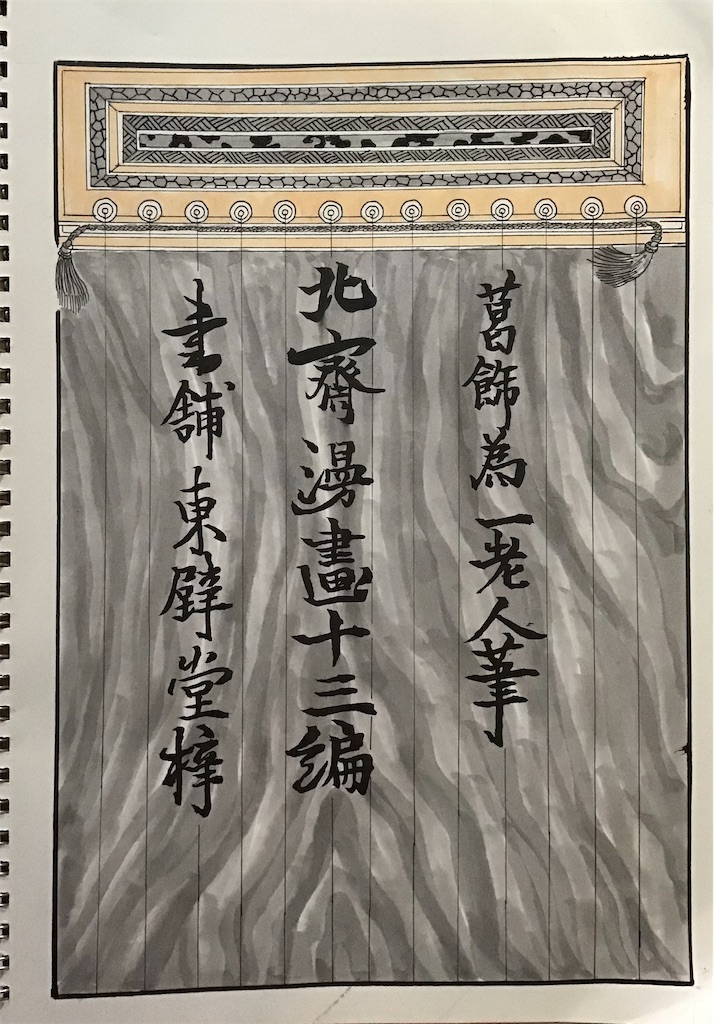 葛飾為一老人筆
北齋漫畫十三編
書舗東壁堂梓